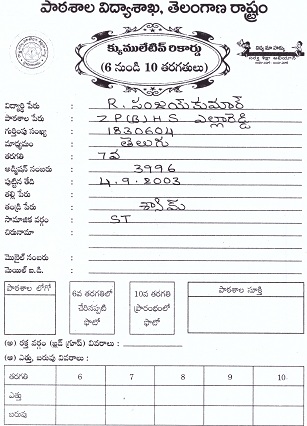 పాఠశాల విద్యాశాఖ, తెలంగాణ రాష్ట్రం
క్యుములేటివ్ రికార్డు
(6 నుండి 10 తరగతులు)
విద్యార్థి పేరు : R. సంజయ్ కుమార్
పాఠశాల పేరు : Z P(B)HS ఎల్లారెడ్డి
గుర్తింపు సంఖ్య : 1830604
మాధ్యమం : తెలుగు
తరగతి : 7వ
అడ్మిషన్ నంబరు : 3996
పుట్టిన తేది : 4.9.2003
తల్లి పేరు :
తండ్రి పేరు :
సామాజిక వర్గం : ST
చిరునామా :
మొబైల్ నంబరు :
మెయిల్ ఐ.డి. :
పాఠశాల లోగో
6వ తరగతిలో చేరినప్పటి ఫొటో
10వ తరగతి ప్రారంభంలో ఫొటో
పాఠశాల సూక్తి
(అ) రక్త వర్గం (బ్లడ్ గ్రూప్) వివరాలు :
(ఆ) ఎత్తు, బరువు వివరాలు :
తరగతి 6 7 8 9 10
ఎత్తు
బరువు